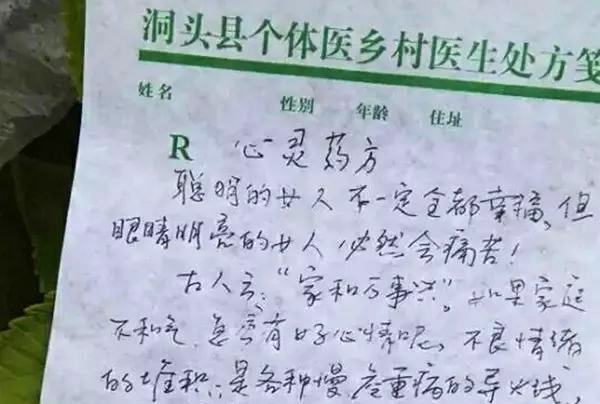 洞头县个体医乡村医生处方笺
姓名 性别 年龄 住址
R 心灵药方
聪明的女人不一定全都幸福,但
眼睛明亮的女人必然会痛苦!
古人言:“家和万事兴”。如果家庭
不和气,怎会有好心情呢,不良情绪
的堆积;是各种慢、危重病的导火线,